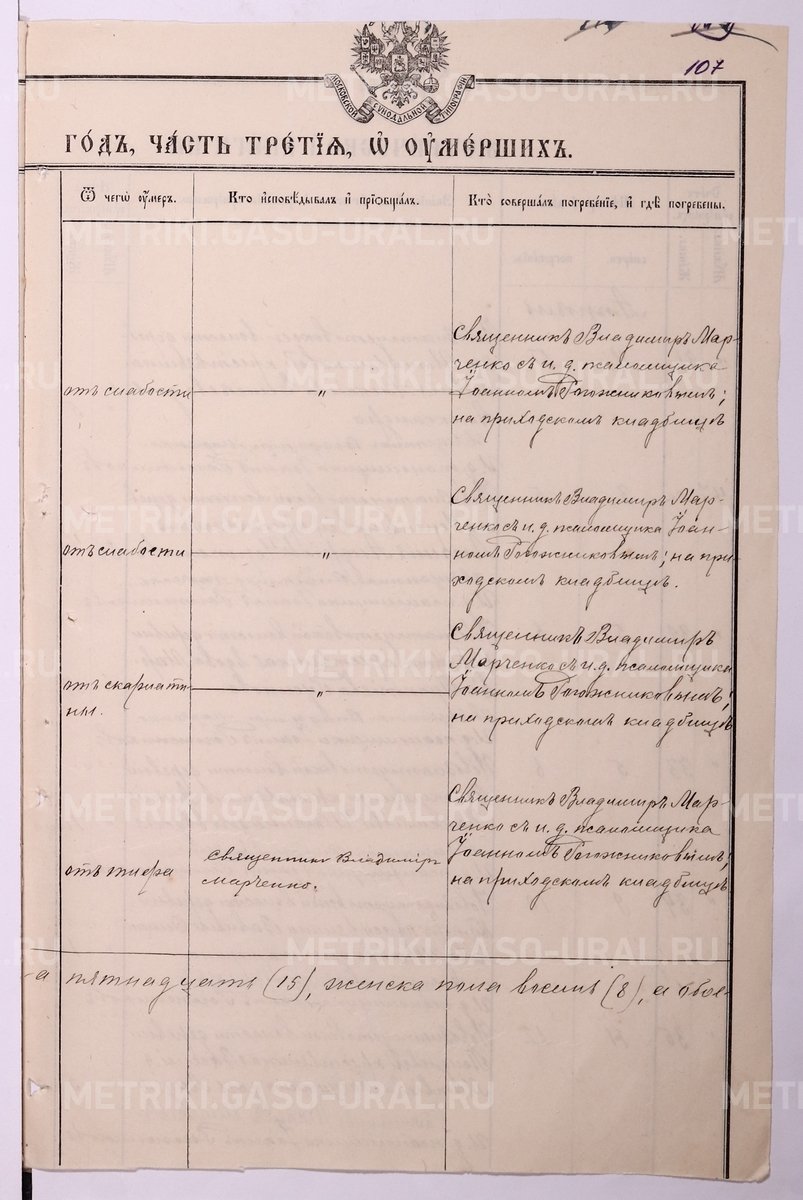 107
МОСКОВСКОЙ СѴНОДАЛЬНОЙ ТИПОГРАФІИ
ГО́ДЪ, ЧА́СТЬ ТРЕ́ТІЯ, Ѡ҆ ОУ҆МЕ́РШИХЪ.
Ѿ чегѡ̀ оу҆́меръ.
Кто̀ и҆сповѣ́дывалъ и҆ прїѡбща́лъ.
Кто̀ соверша́лъ погребе́нїе, и҆ гдѣ̀ погребены̀.
отъ слабости
"
Священникъ Владимиръ Мар-
ченко съ и. д. псаломщика
Іоанномъ Рогожниковымъ;
на приходскомъ кладбищѣ
отъ слабости
"
Священникъ Владимиръ Мар-
ченко съ и. д. псаломщика Іоан-
номъ Рогожниковымъ; на при-
ходскомъ кладбищѣ.
отъ скарлати-
ны.
"
Священникъ Владимиръ
Марченко съ и. д. псаломщика
Іоанномъ Рогожниковымъ;
на приходскомъ кладбищѣ
отъ тифа
Священникъ Владиміръ
Марченко.
Священникъ Владимиръ Мар-
ченко съ и. д. псаломщика
Іоанномъ Рогожниковымъ;
на приходскомъ кладбищѣ
-а пятнадцать (15), женска пола восемь (8), а обое-
METRIKI.GASO-URAL.RU